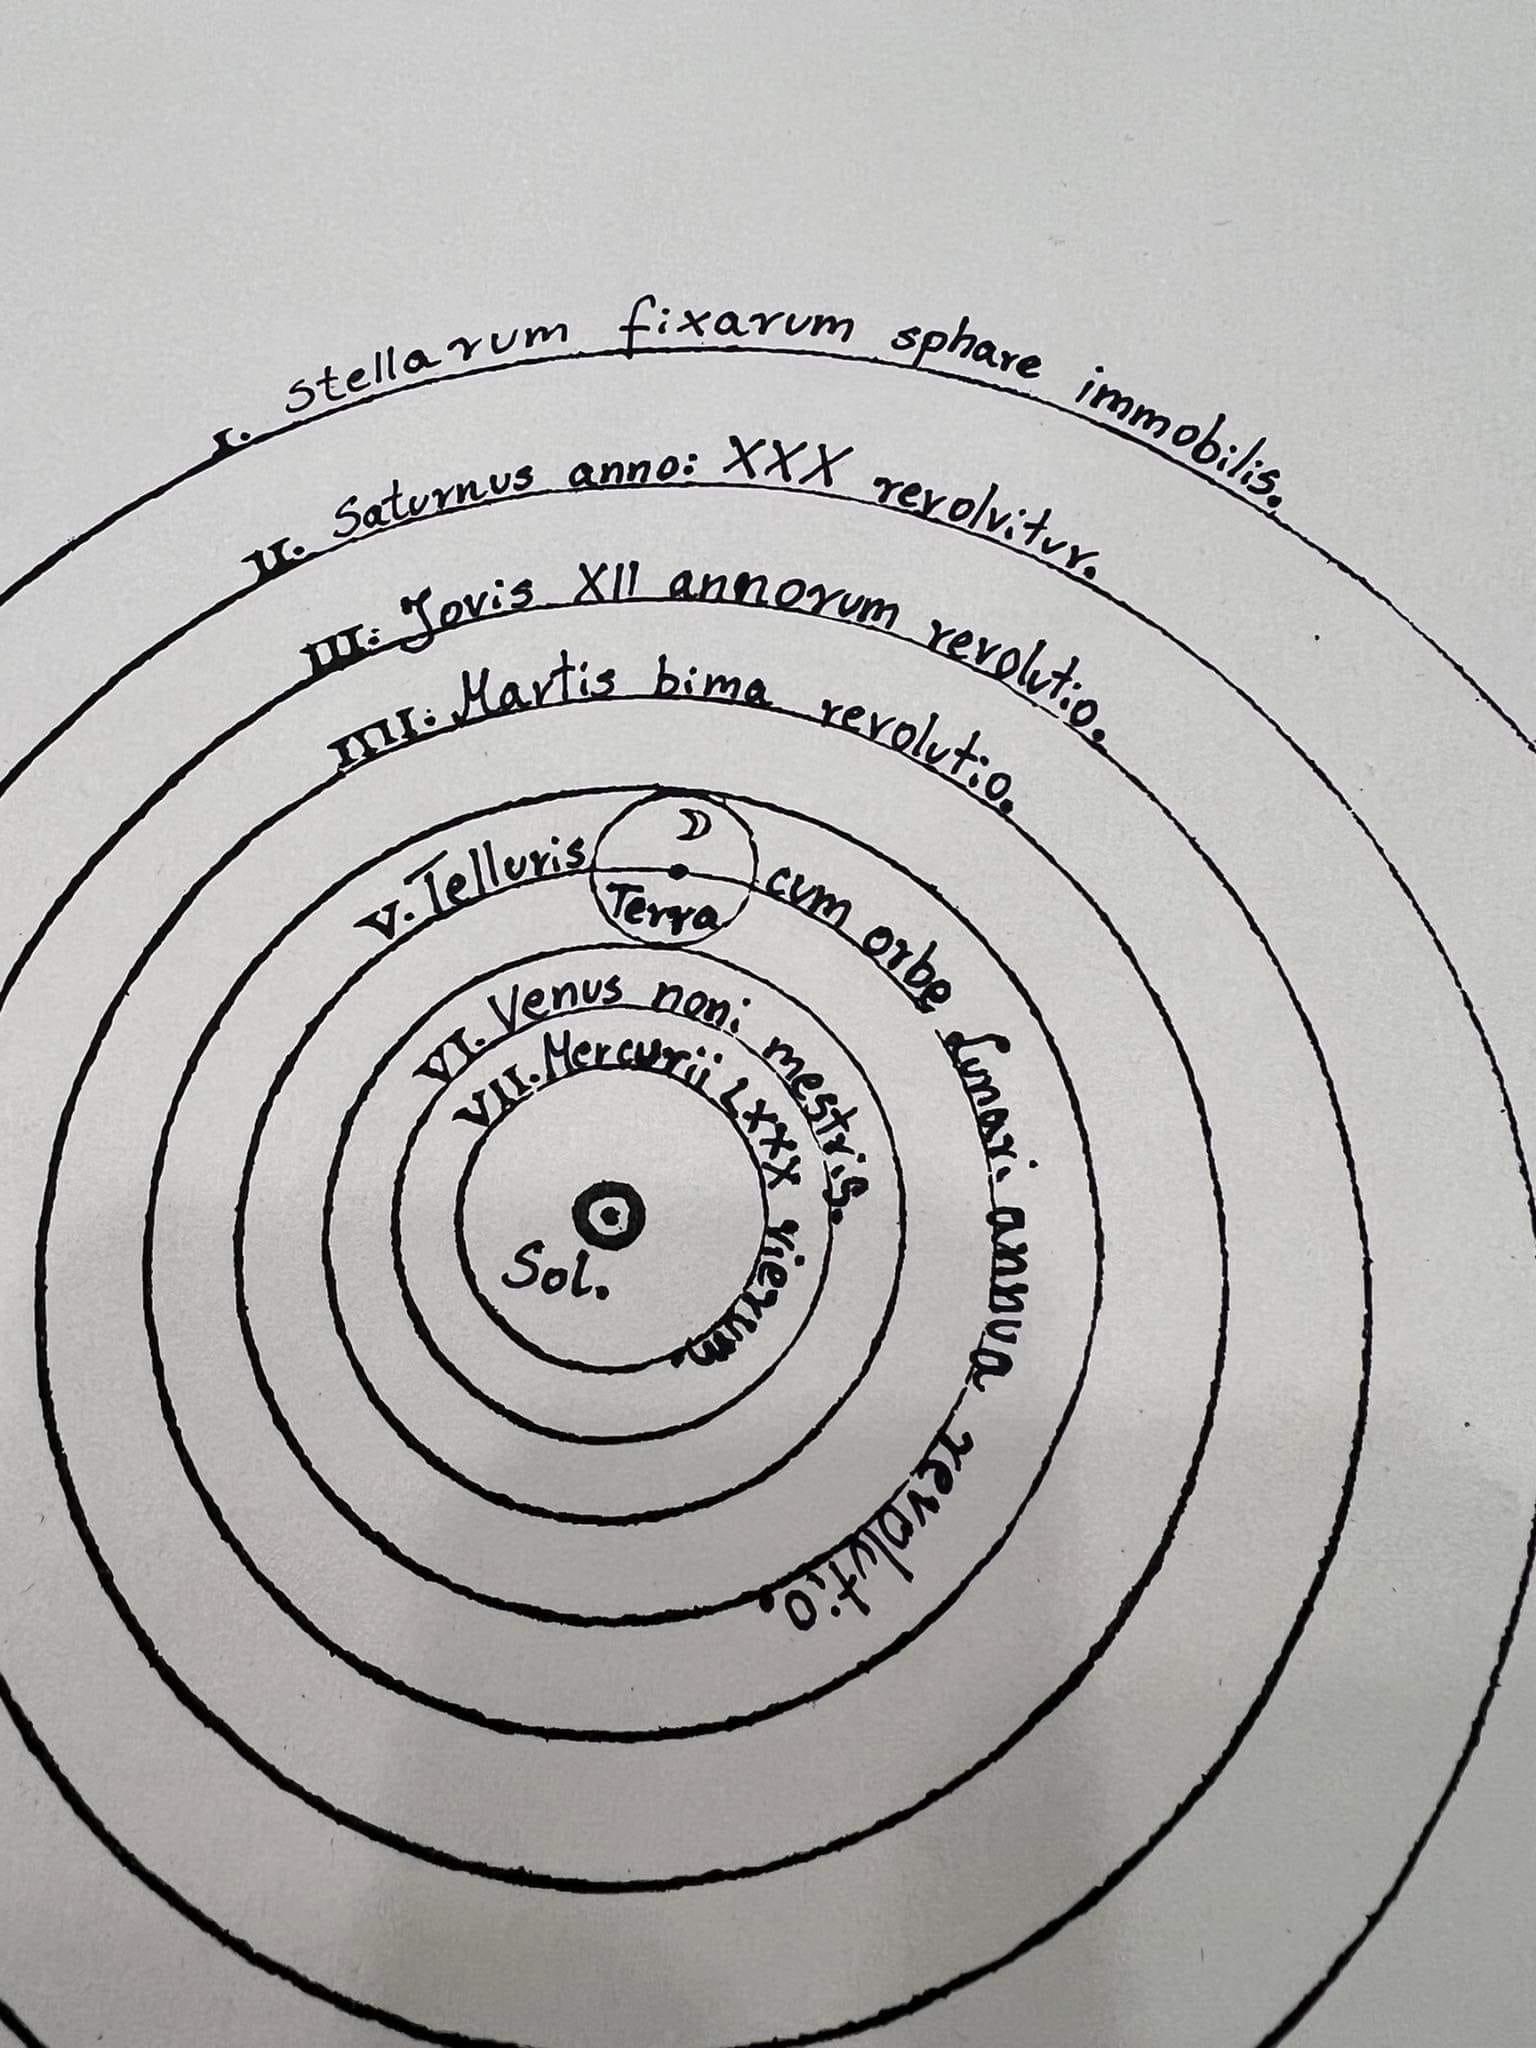 I. Stellarum fixarum sphare immobilis.
II. Saturnus anno: XXX revolvitur.
III: Jovis XII annorum revolutio.
IIII: Martis bima revolutio.
V. Telluris cum orbe Lunari annua revolutio.
Terra
VI. Venus noni mestris.
VII. Mercurii LXXX vierum.
Sol.